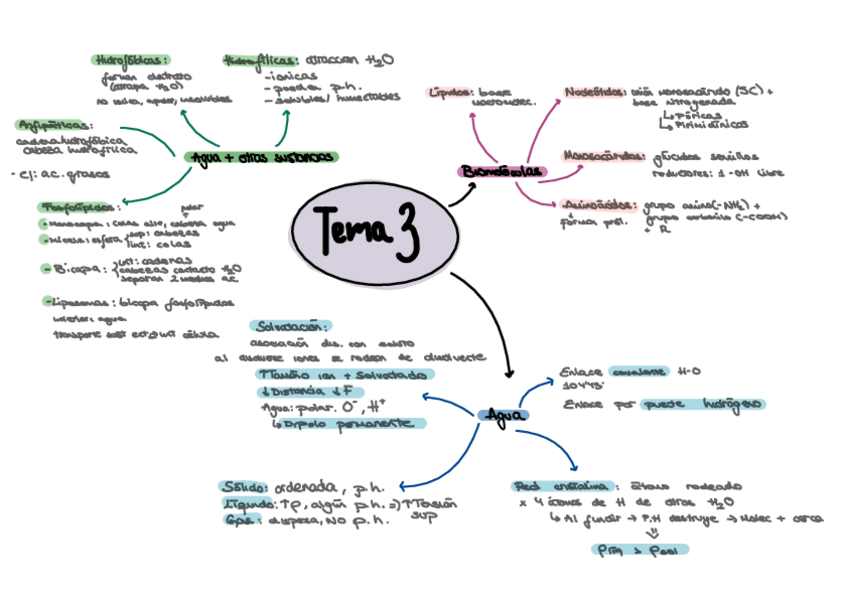 Hidrofóbicas:
(atrapa H2O)
no iónica, apolar, insolubles
Hidrofílicas: atracción H2O
- iónicas
- puentes p.h.
- solubles/ humectables
Anfipáticas:
cadena hidrofóbica
cabeza hidrofílica
- Ej: ac. grasos
Agua + otras sustancias
Fosfolípidos:
polar
- Monocapa: colas aire, cabeza agua
- Micela: esfera
sup: cabezas
int: colas
- Bicapa:
int: cadenas
cabezas contacto H2O
separan 2 medios ac.
- Liposomas: bicapa fosfolípidos
interior: agua
transporte sust ext → int célula
Tema 3
Biomoléculas
Lípidos: base
Nucleótidos: unión monosacárido (5C) +
base nitrogenada
↳ Púricas
↳ Pirimidínicas
Monosacáridos: glúcidos sencillos
reductores: 1 -OH libre
Aminoácidos: grupo amino(-NH2) +
grupo carboxilo (-COOH)
+ R
forma prot.
Solvatación:
asociación dis. con soluto
al disolverse iones se rodean de disolvente
↑Tamaño ion + Solvatado
↓Distancia ↓F
Agua: polar. O-, H+
↳ Dipolo permanente
Agua
Enlace covalente H-O
104'45º
Enlace por puente hidrógeno
Sólido: ordenada, p.h.
Líquido: ↑ρ, algún p.h. ⇒ ↑Tensión
sup
Gas: dispersa, NO p.h.
Red cristalina: átomo rodeado
x 4 átomos de H de otros H2O
↳ Al fundir → P.H destruye → Molec + cerca
⇓